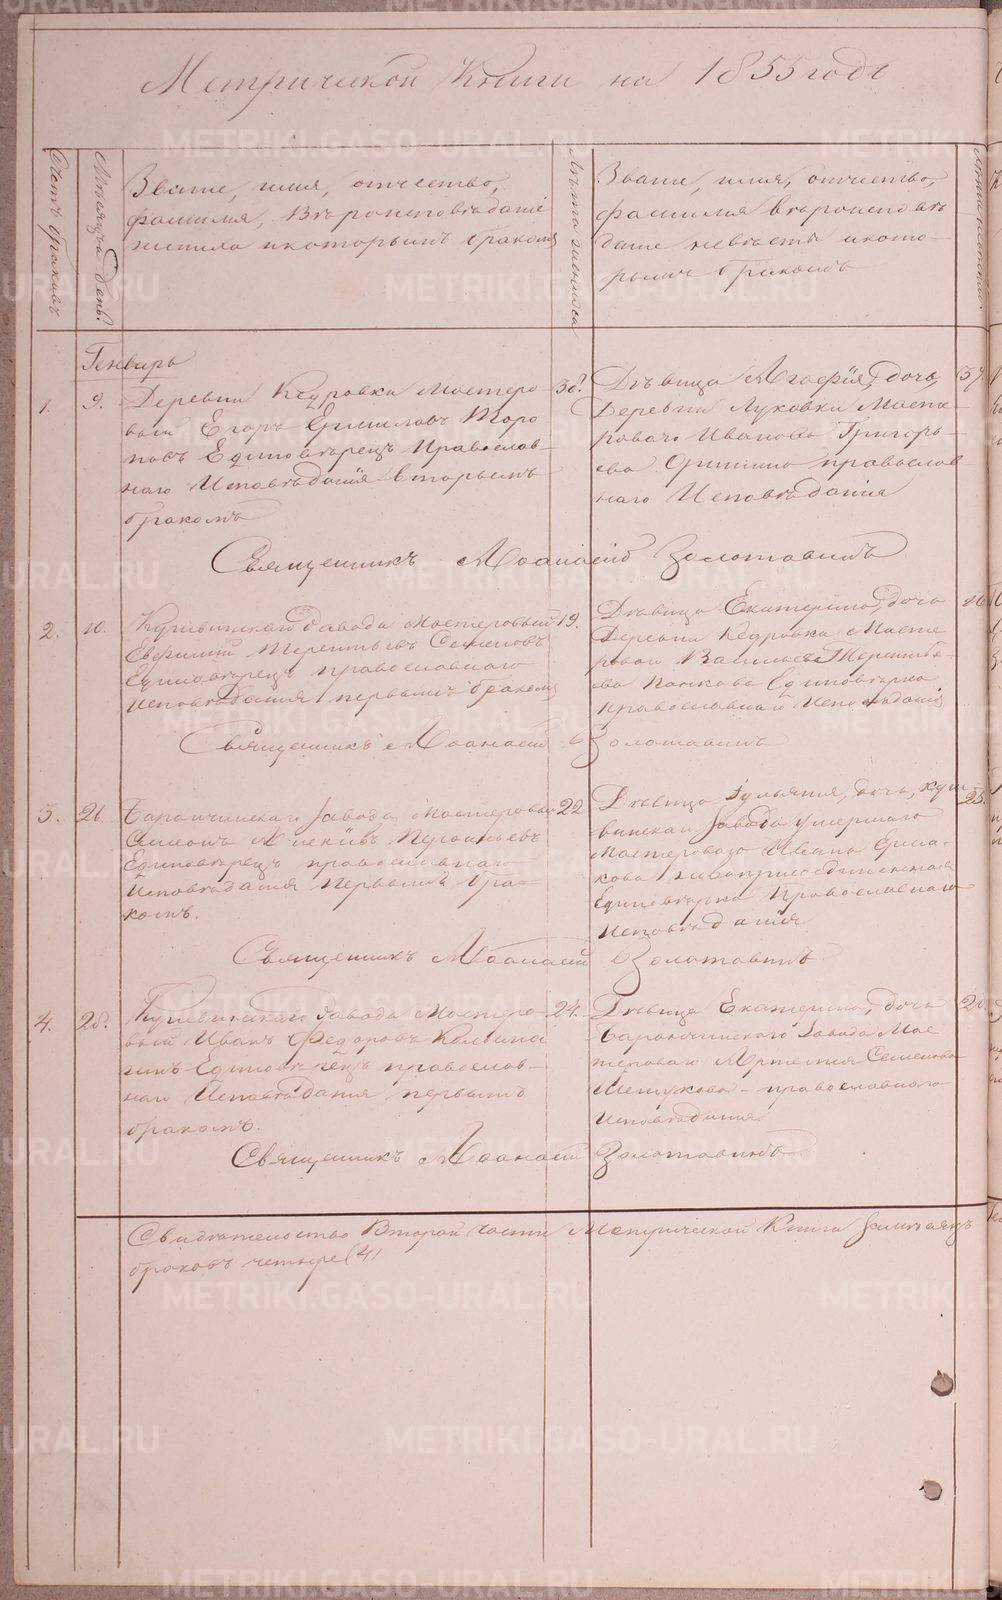 Метрической Книги на 1855 годъ
Счетъ браковъ
Мѣсяцъ и день.
Званіе, имя, отчество,
фамилія, вѣроисповѣданіе
жениха и которымъ бракомъ
Лѣта жениха
Званіе, имя, отчество,
фамилія вѣроисповѣ
даніе невѣсты и кото-
рымъ бракомъ
Лѣта невѣсты.
Генварь
1. 9.
Деревни Кедровки Мастеро-
вой Егоръ
Единовѣрецъ Православ-
наго Исповѣданія вторымъ
бракомъ
38.
Дѣвица Агафія, дочь
Деревни Луковки Масте-
роваго Иванова Григорь-
ева православ
наго Исповѣданія
37
Священникъ Аѳанасій Золотавинъ
2. 10.
Кушвинскаго завода Мастеровый
Евфимій Терентьевъ Семеновъ
Единовѣрецъ православнаго
исповѣданія первымъ бракомъ
19.
Дѣвица Екатерина, дочь
Деревни Кедровки Масте
роваго Васильева Терентье-
ева Единовѣрка
православнаго исповѣданія
Священникъ Аѳанасій Золотавинъ
3. 21.
Баранчинскаго Завода Мастеровой
Симеонъ
Единовѣрецъ православнаго
Исповѣданія Первымъ бра-
комъ.
22
Дѣвица Іульянія, дочь, Куш
винскаго Завода умершаго
Мастероваго Ивана Ерма-
кова новоприсоединенная
Единовѣрка Православнаго
исповѣданія
23.
Священникъ Аѳанасій Золотавинъ
4. 28.
Кушвинскаго Завода Мастеро-
вый Иванъ Федоровъ
Единовѣрецъ православ-
наго Исповѣданія первымъ
бракомъ.
24.
Дѣвица Екатерина, дочь
Баранчинскаго Завода Мас
тероваго Артемія Семенова
православнаго
Исповѣданія
20
Священникъ Аѳанасій Золотавинъ
Второй части Метрической Книги
браковъ четыре (4)
METRIKI.GASO-URAL.RU